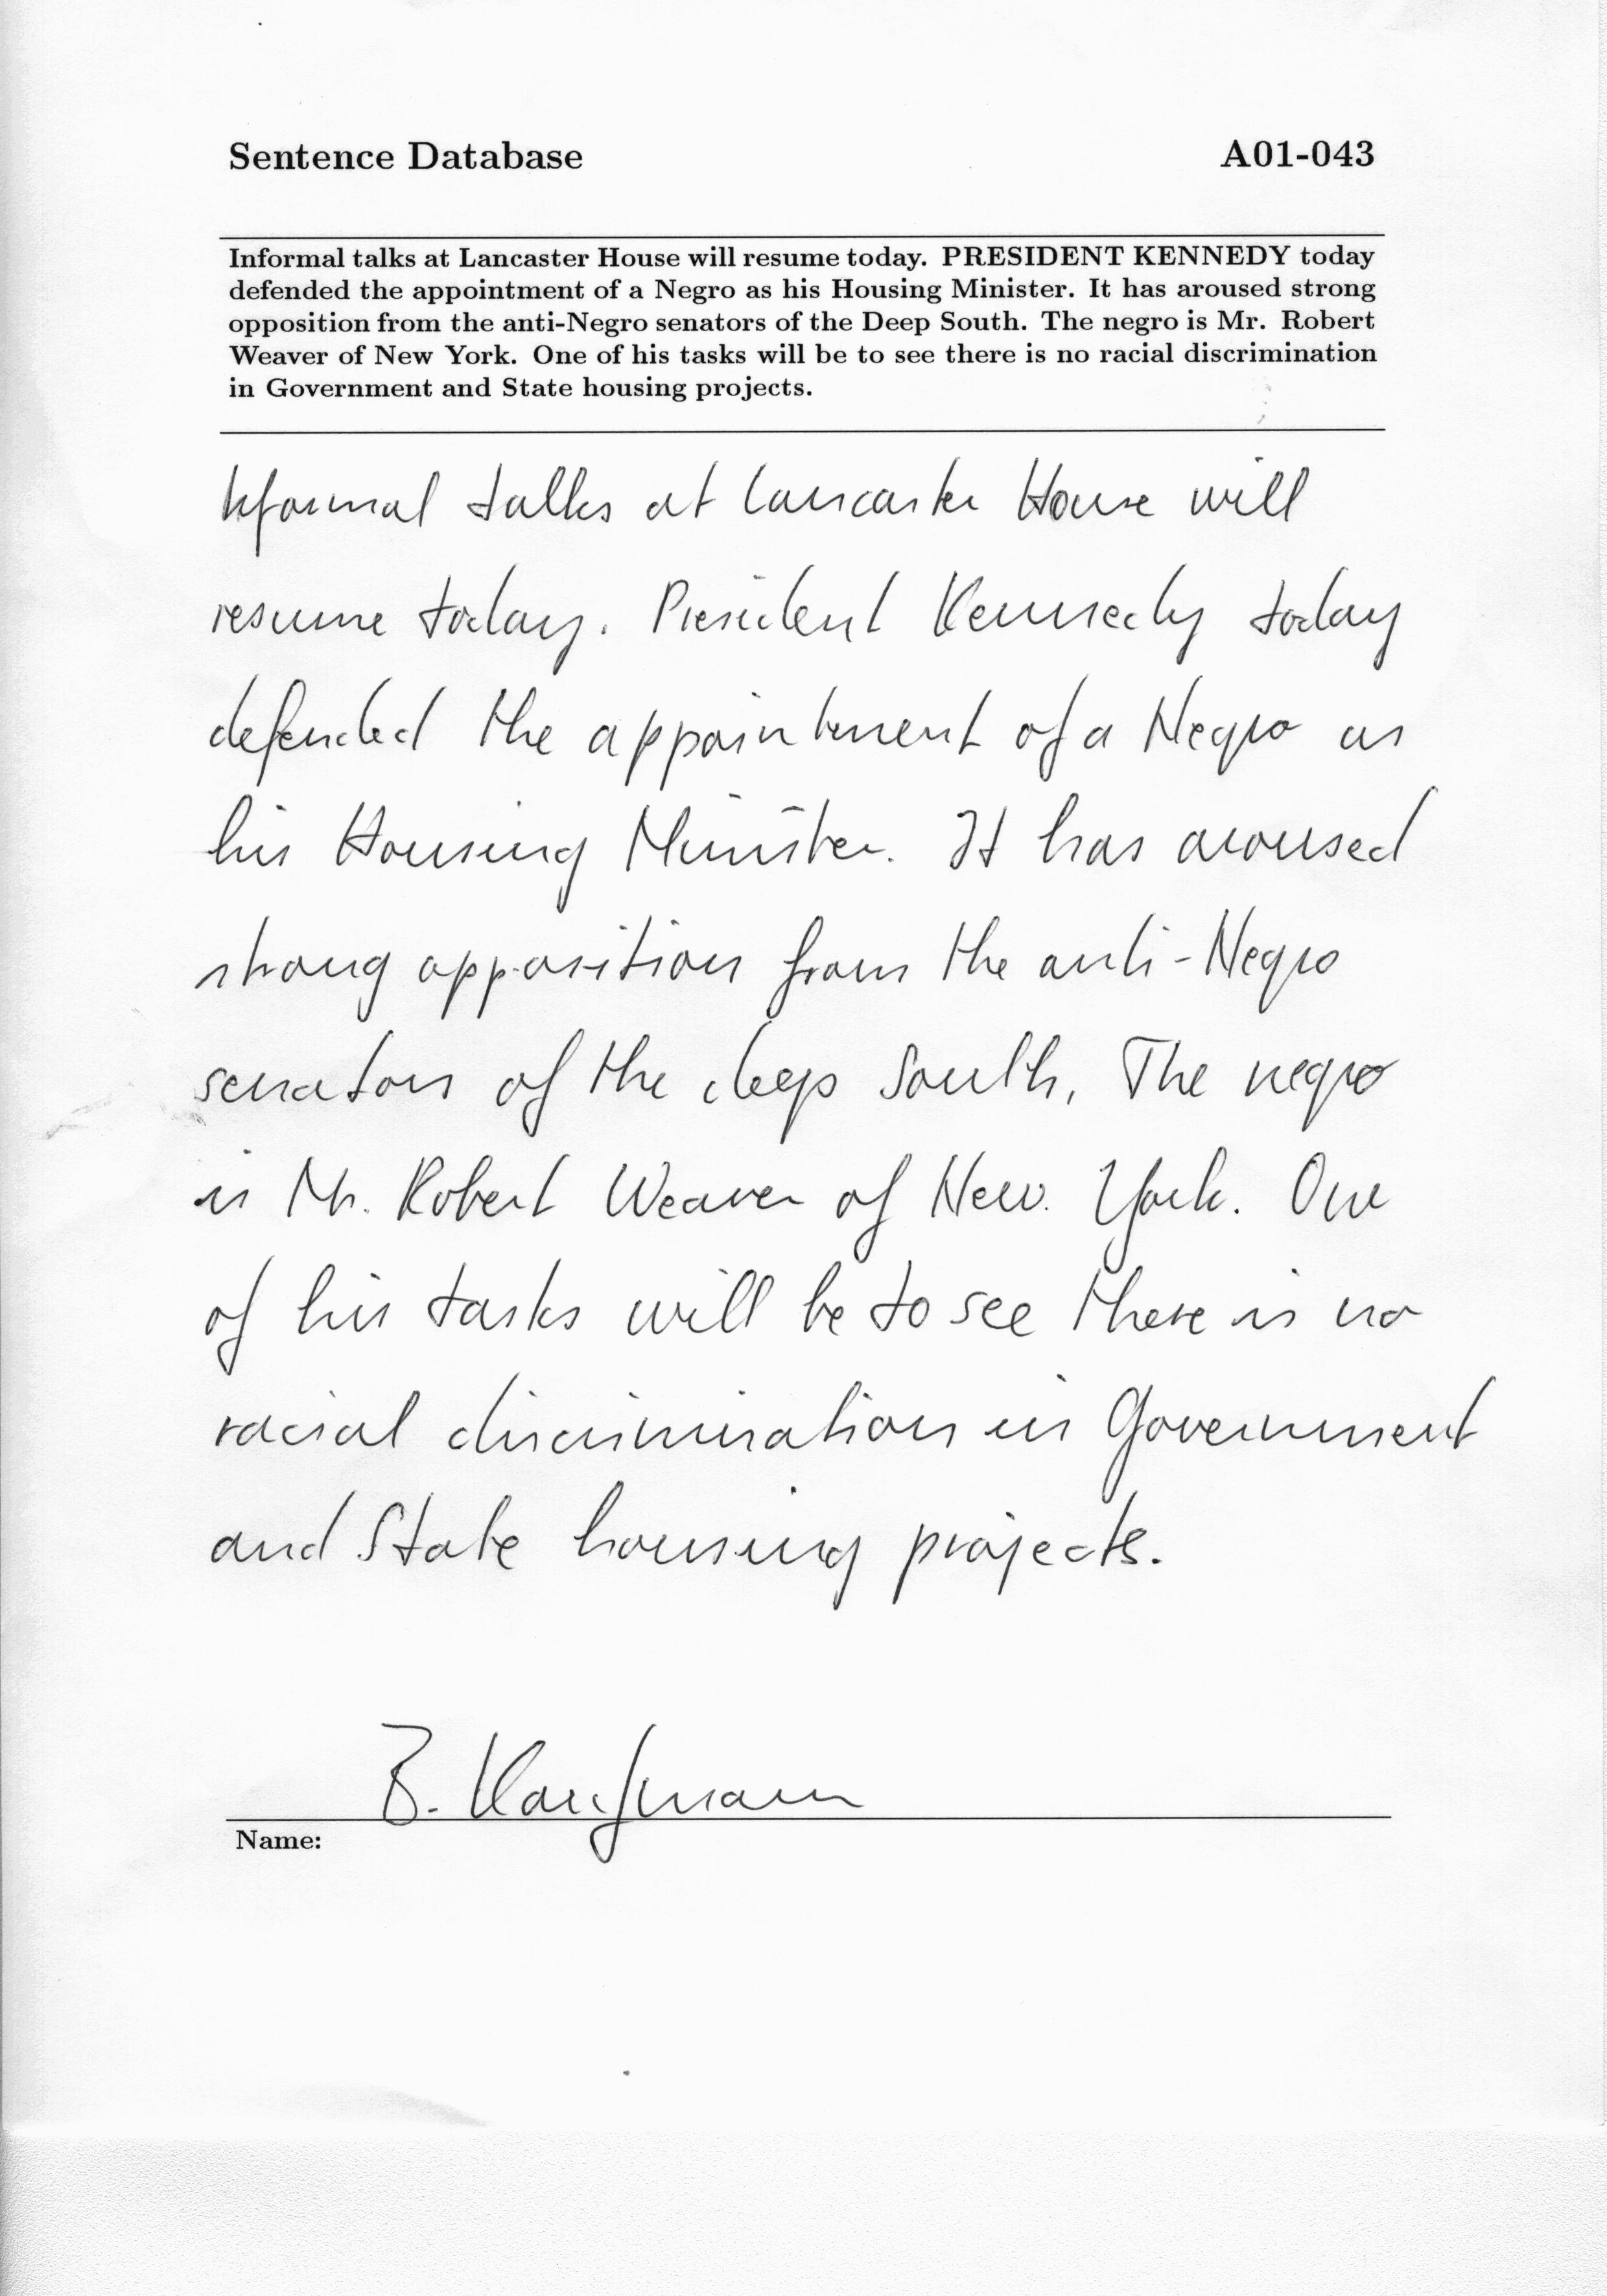 Sentence Database A01-043
Informal talks at Lancaster House will resume today. PRESIDENT KENNEDY today
defended the appointment of a Negro as his Housing Minister. It has aroused strong
opposition from the anti-Negro senators of the Deep South. The negro is Mr. Robert
Weaver of New York. One of his tasks will be to see there is no racial discrimination
in Government and State housing projects.
Informal talks at Lancaster House will
resume today. President Kennedy today
defended the appointment of a Negro as
his Housing Minister. It has aroused
strong opposition from the anti-Negro
senators of the deep South. The negro
is Mr. Robert Weaver of New York. One
of his tasks will be to see there is no
racial discrimination in Government
and State housing projects.
B. Kaufmann
Name: